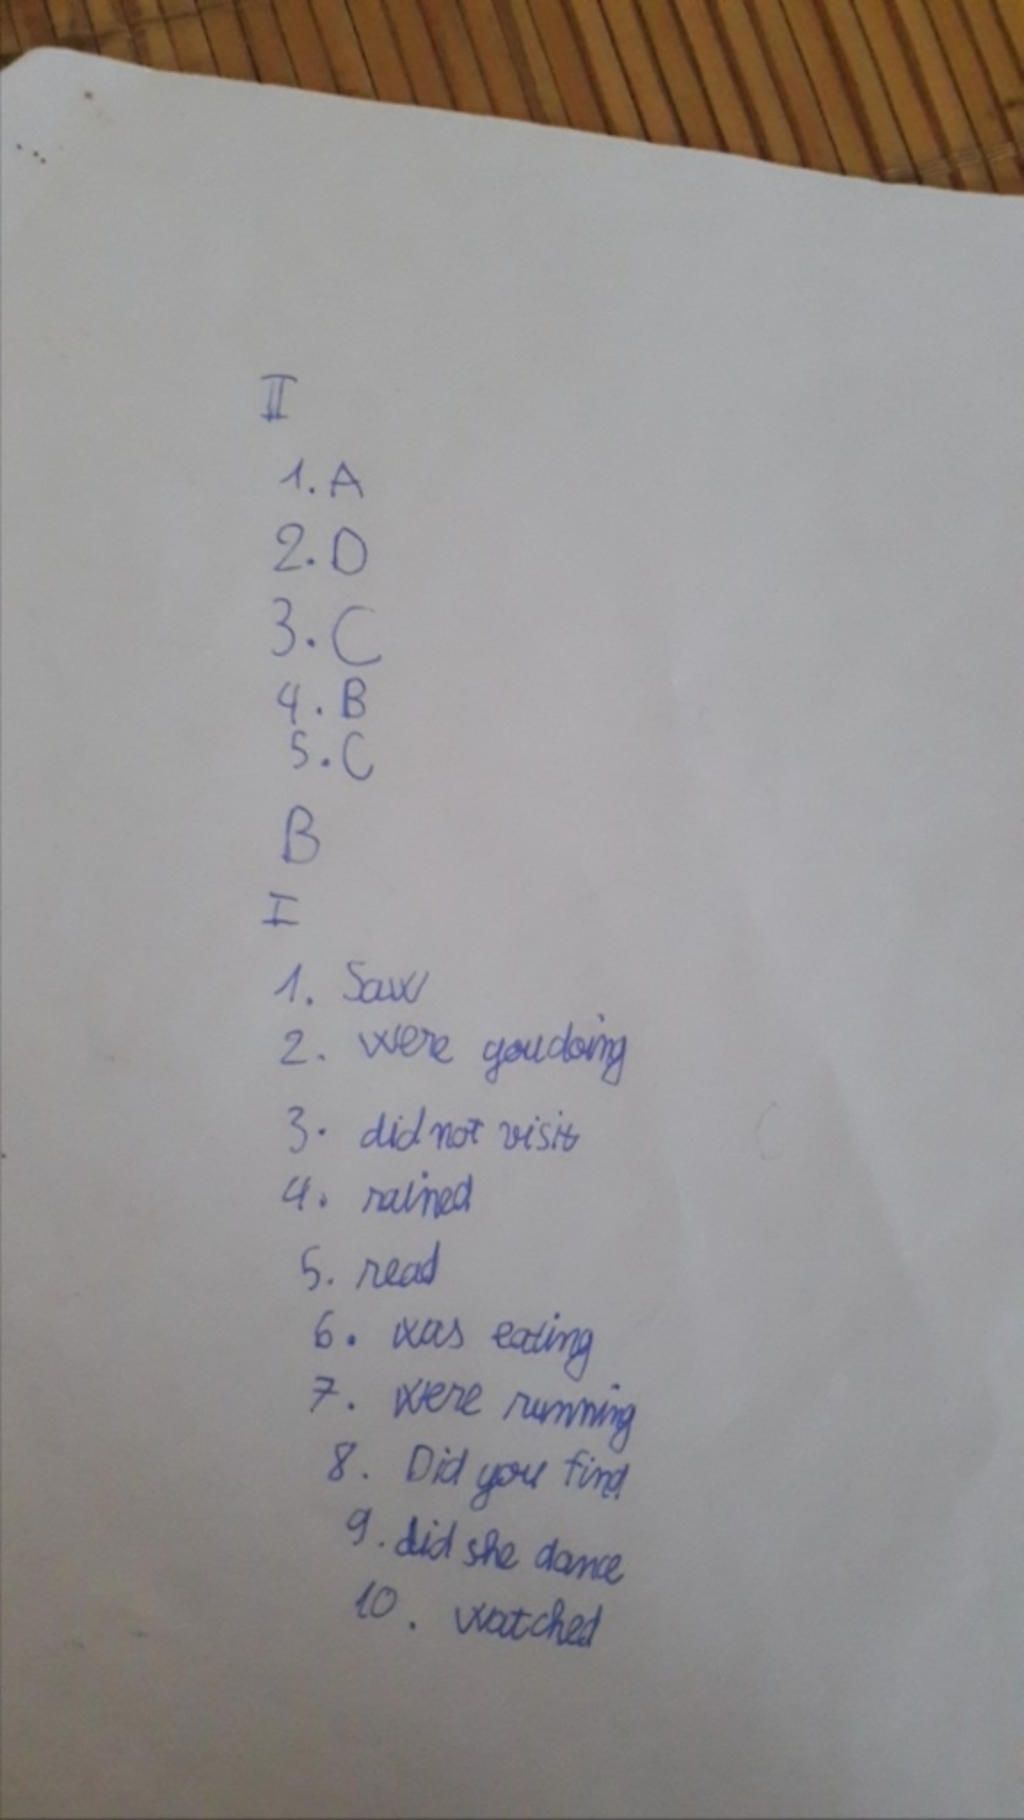 II
1. A
2. D
3. C
4. B
5. C
B
I
1. Saw
2. were you doing
3. did not visit
4. rained
5. read
6. was eating
7. were running
8. Did you find
9. did she dance
10. watched